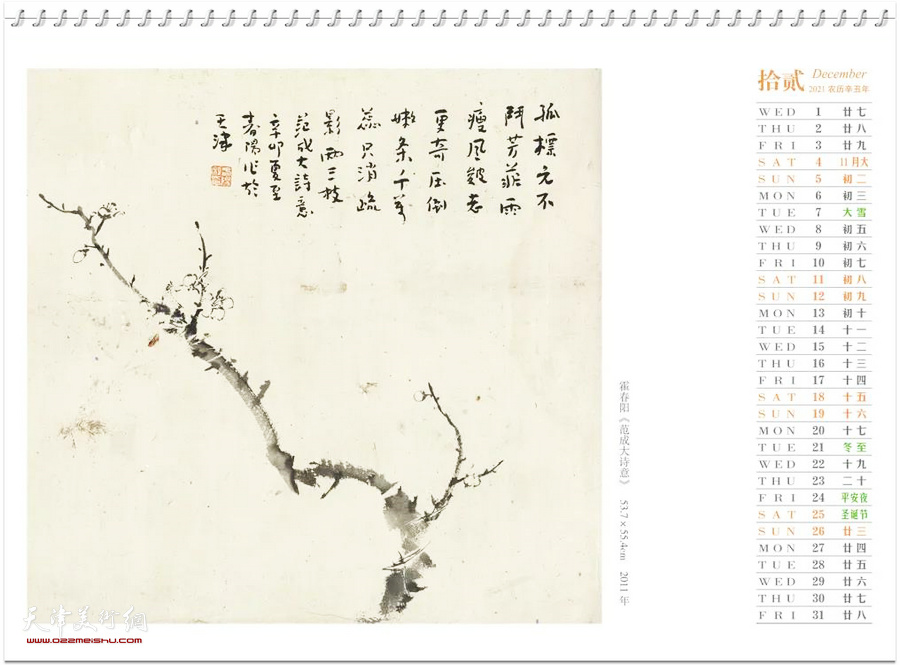 孤標元不
鬥芳菲雨
瘦風皴老
更奇压倒
嫩条千萬
蕊只消疏
影兩三枝
范成大詩意
辛卯夏至
春陽作於
天津
霍春阳《范成大诗意》 53.7×55.4cm 2011年
拾贰 December
2021 农历辛丑年
WED 1 廿七
THU 2 廿八
FRI 3 廿九
SAT 4 11月大
SUN 5 初二
MON 6 初三
TUE 7 大雪
WED 8 初五
THU 9 初六
FRI 10 初七
SAT 11 初八
SUN 12 初九
MON 13 初十
TUE 14 十一
WED 15 十二
THU 16 十三
FRI 17 十四
SAT 18 十五
SUN 19 十六
MON 20 十七
TUE 21 冬至
WED 22 十九
THU 23 二十
FRI 24 平安夜
SAT 25 圣诞节
SUN 26 廿三
MON 27 廿四
TUE 28 廿五
WED 29 廿六
THU 30 廿七
FRI 31 廿八
天津美術網
www.022meishu.com